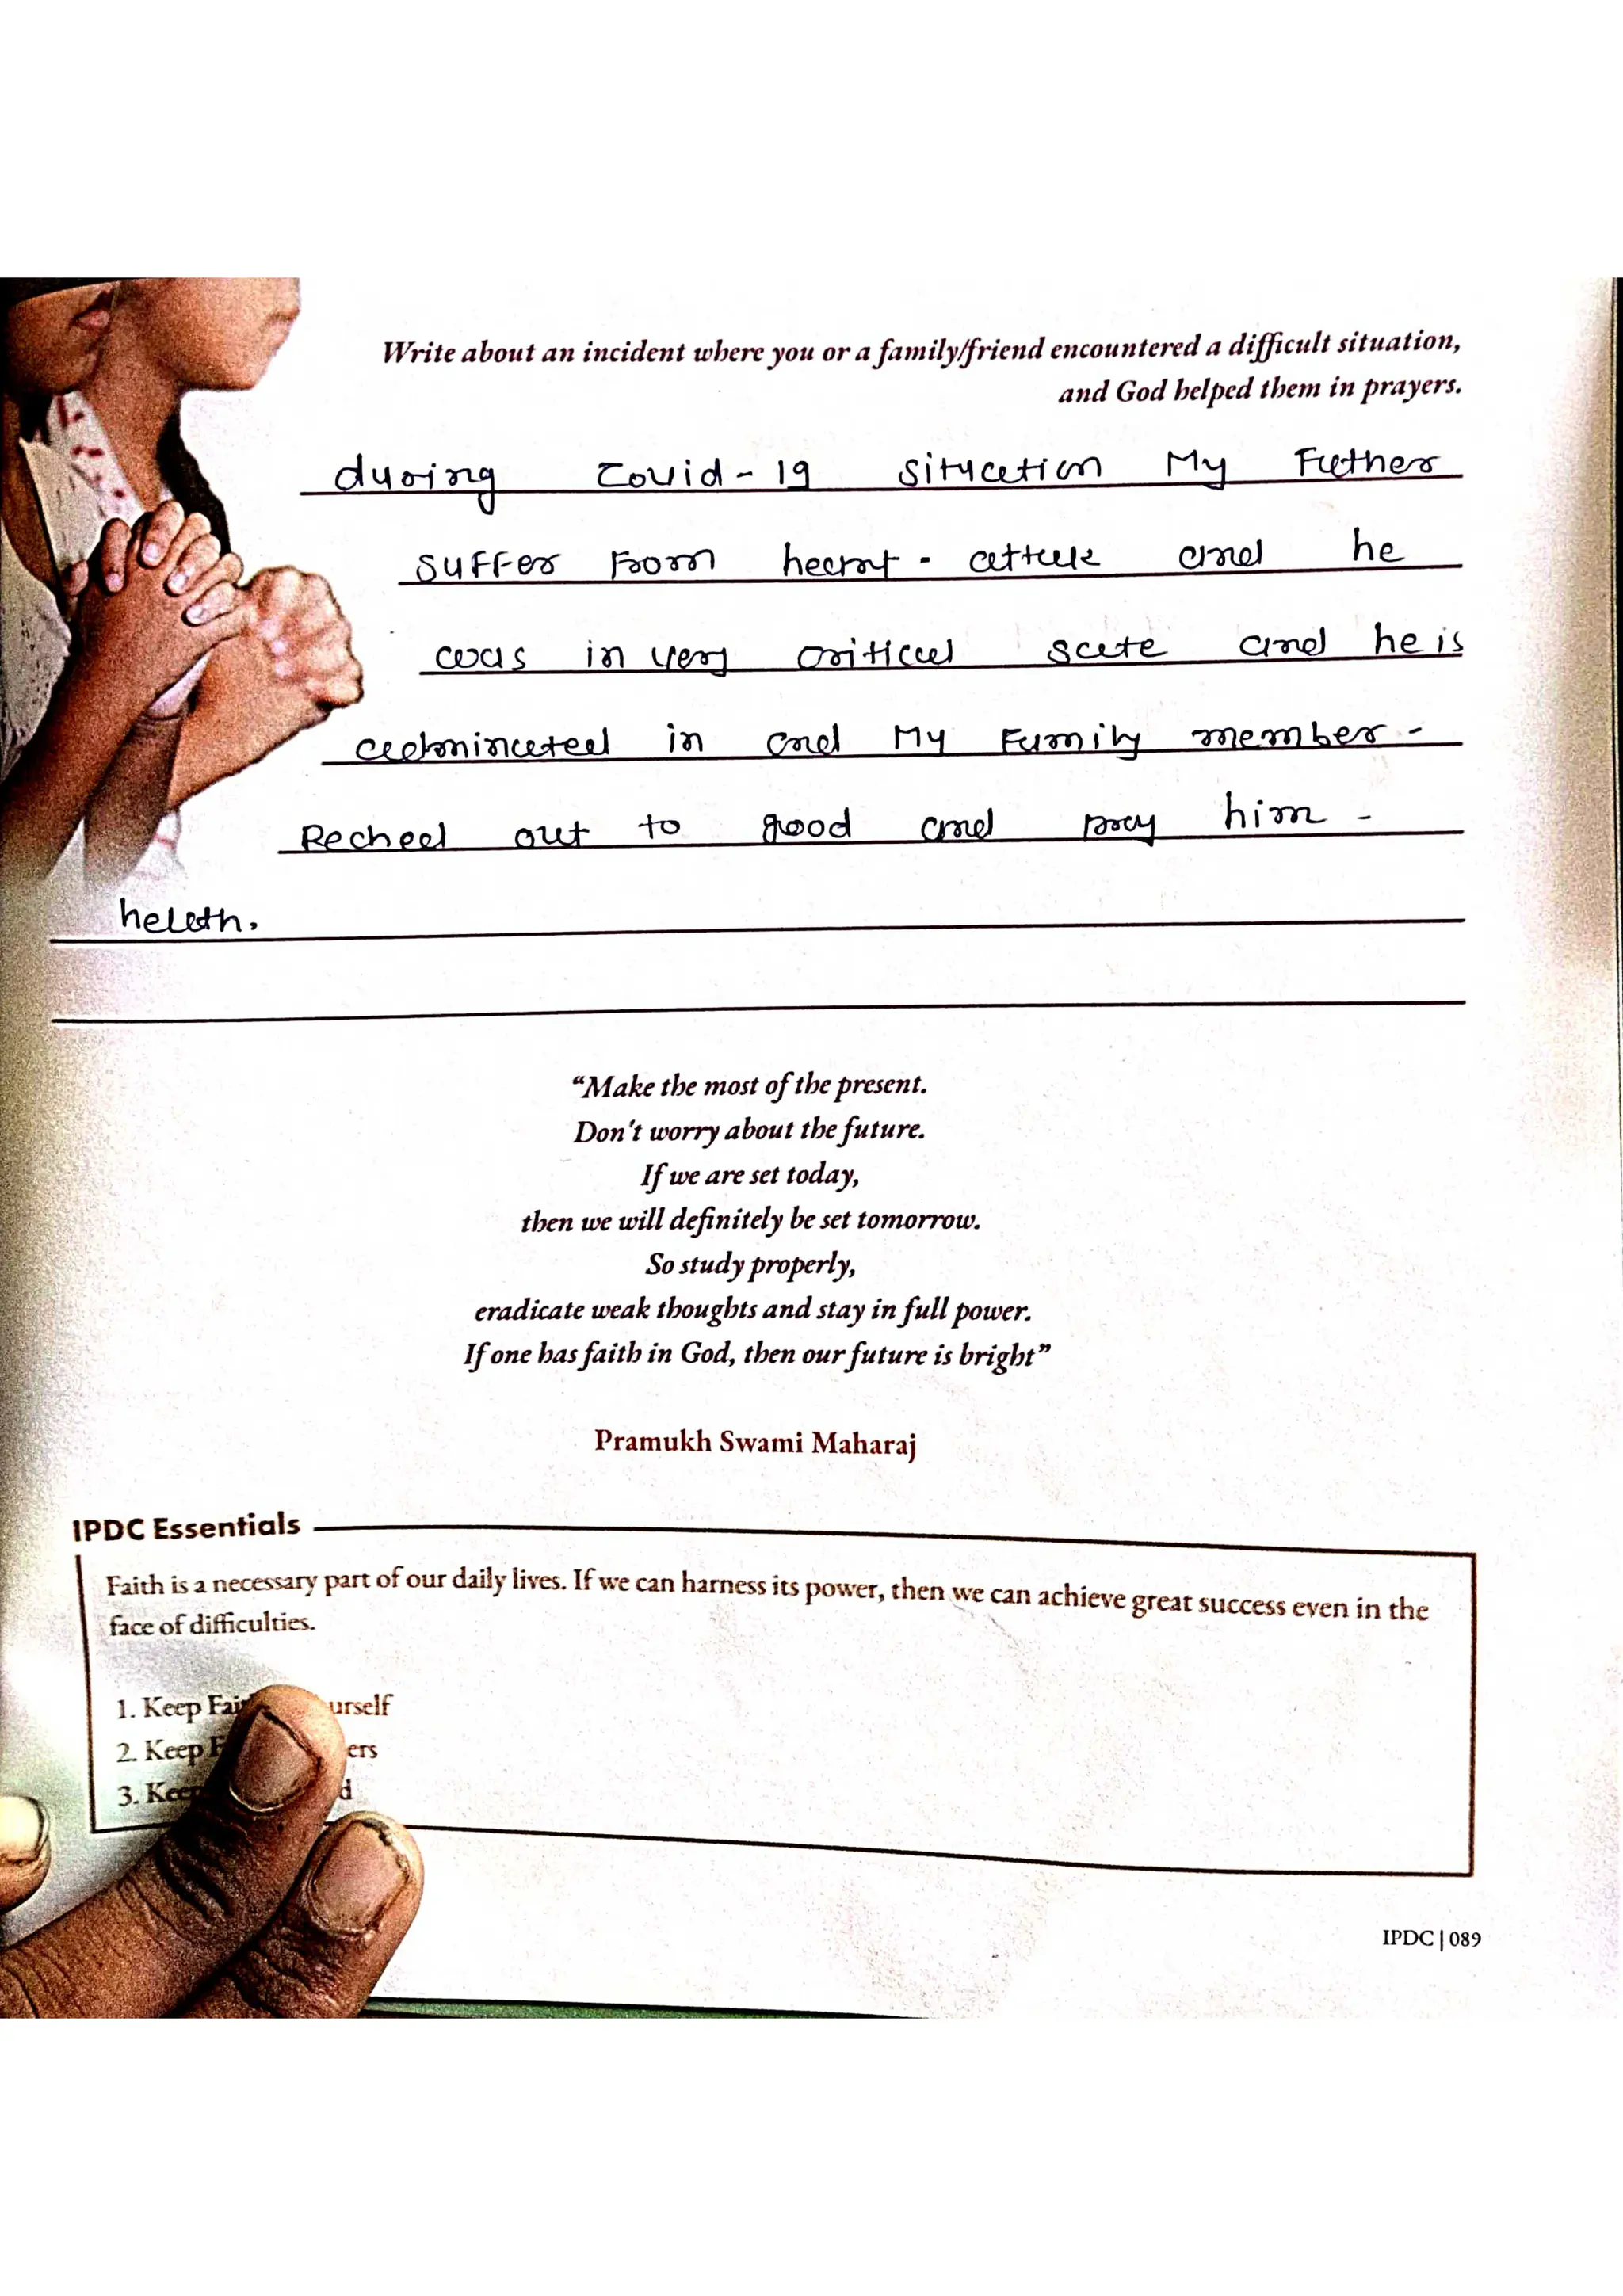 Write about an incident where you or a family/friend encountered a difficult situation,
and God helped them in prayers.
during Covid-19 situcation My Father
suffer from heart - attack and he
was in very critical scate and he is
adminated in and My Family member -
Reched out to good and pray him -
heleth.
“Make the most of the present.
Don't worry about the future.
If we are set today,
then we will definitely be set tomorrow.
So study properly,
eradicate weak thoughts and stay in full power.
If one has faith in God, then our future is bright”
Pramukh Swami Maharaj
IPDC Essentials
Faith is a necessary part of our daily lives. If we can harness its power, then we can achieve great success even in the
face of difficulties.
1. Keep Fai urself
2. Keep F ers
3. Keep d
IPDC | 089